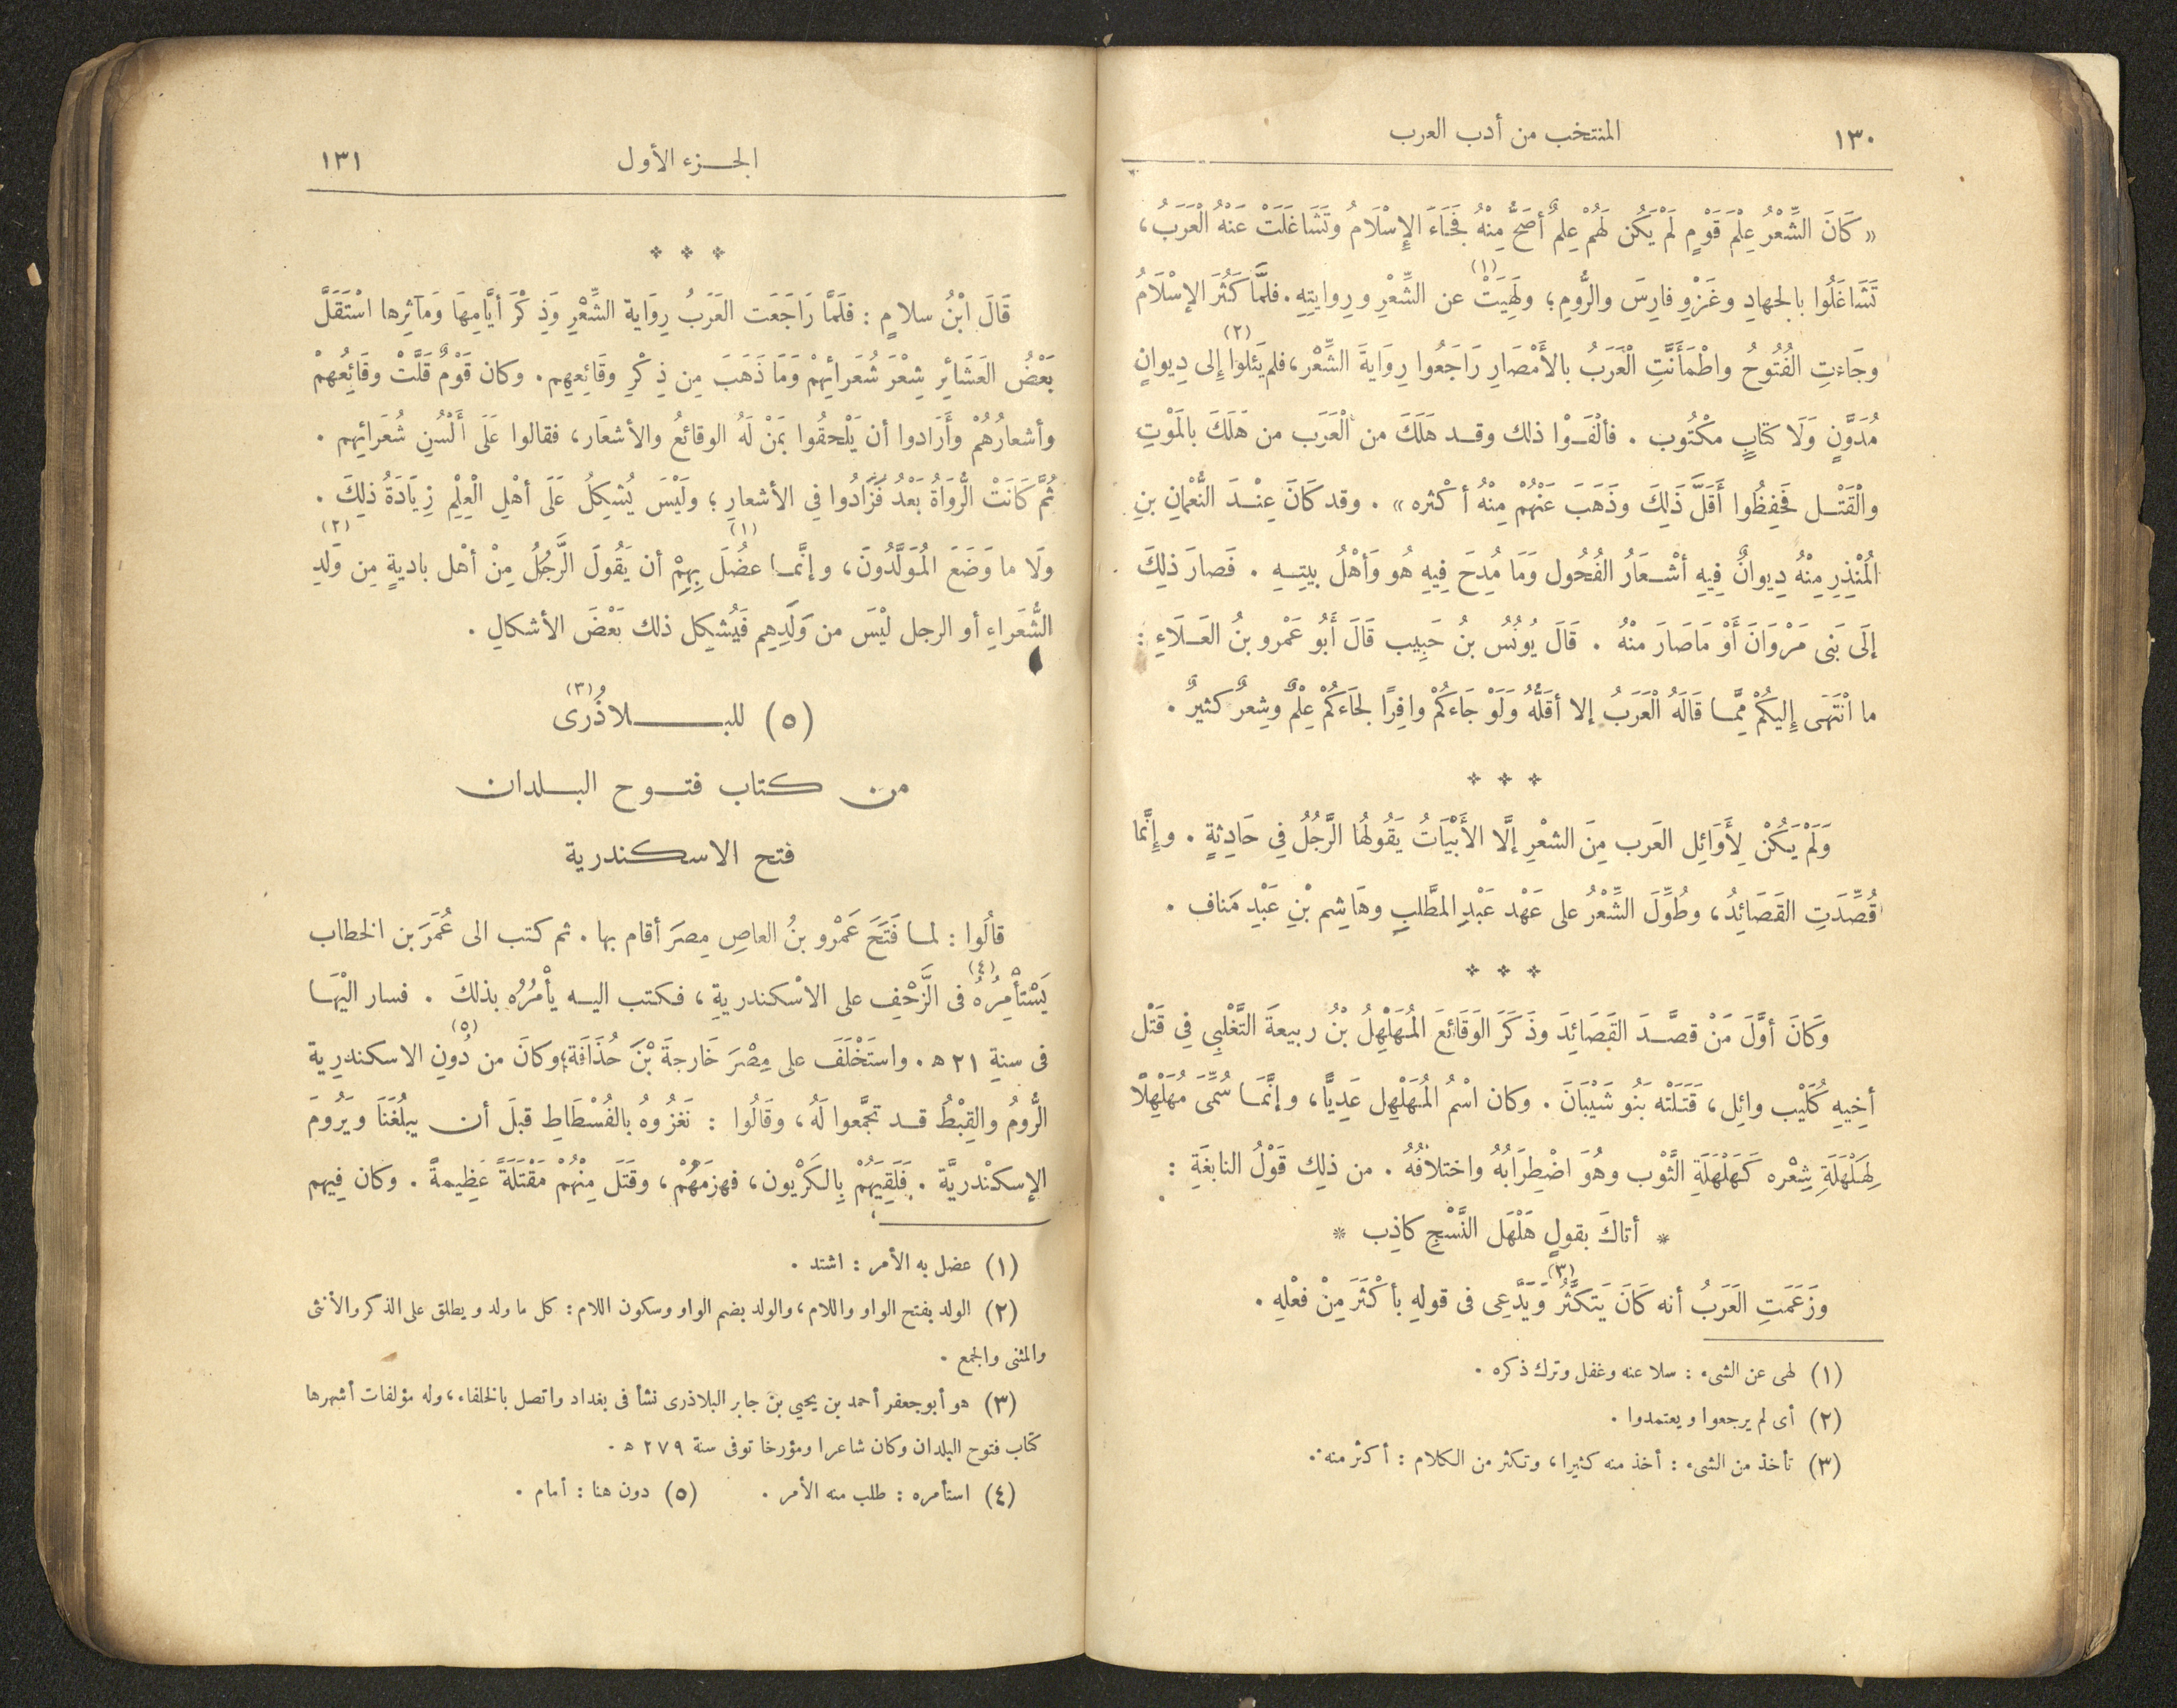 ١٣٠
المنتخب من أدب العرب
«كَانَ الشِّعْرُ عِلْمَ قَوْمٍ لَمْ يَكُن لَهُمْ عِلمٌ أَصَحُّ مِنْهُ فَجَاءَ الإِسْلَامُ وتَشَاغَلَتْ عَنْهُ الْعَرَبُ،
تَشَاغَلُوا بالجهادِ وغَزْوِ فارِسَ والرُّومِ؛ ولَهِيَتْ (١) عن الشِّعْرِ ورِوايتِهِ. فلمَّا كَثُرَ الإسْلَامُ
وجَاءتِ الفُتُوحُ واطْمَأَنَّتِ الْعَرَبُ بالأَمْصَارِ رَاجَعُوا رِوَايةَ الشِّعْر، فلم يَئلوا (٢) إِلى دِيوانٍ
مُدَوَّنٍ وَلَا كتَابٍ مكْتُوب . فألفَوْا ذلك وقد هَلَكَ من الْعَرَب من هَلَكَ بالمَوْتِ
والْقَتْل فَحَفِظُوا أَقَلَّ ذَلِكَ وذَهَبَ عَنْهُمْ مِنْهُ أكْثره» . وقد كَانَ عِنْدَ النُّعْمانِ بنِ
المُنْذِرِ مِنْهُ دِيوانٌ فِيهِ أشْعَارُ الفُحُول وَمَا مُدِحَ فِيهِ هُو وَأهْلُ بيتِهِ . فَصارَ ذلِكَ
إلَى بَنى مَرْوَانَ أَوْ مَاصَارَ منْهُ . قَالَ يُونُسُ بنُ حَبِيب قَالَ أَبُو عَمْرو بنُ العَلَاءِ :
ما انْتَهَى إِليكُمْ مِمَّا قَالَهُ الْعَرَبُ إلا أقَلُّهُ وَلَوْ جَاءكُمْ وافِرًا لَجَاءكُمْ عِلْمٌ وشِعرٌ كثيرٌ .
* * *
وَلَمْ يَكُنْ لِأَوَائِل العَرب مِنَ الشعْرِ إلَّا الأَبْيَاتُ يَقُولهُا الرَّجُلُ فِي حَادِثةٍ . وإِنَّما
قُصِّدَتِ القَصَائِدُ، وطُوِّلَ الشِّعْرُ على عَهْد عَبْدِ المطَّلبِ وهَاشِم بْنِ عَبْدِ مَناف .
* * *
وكَانَ أوَّلَ مَنْ قصَّدَ القَصَائِدَ وذَكَرَ الوَقَائعَ المُهَلْهِلُ بْنُ ربيعةَ التَّغْلبِي فِي قَتْل
أخِيهِ كُلَيْب وائِل، قَتَلَتْه بَنُو شَيْبَانَ . وكان اسْمُ المُهَلْهِل عَدِيًّا، وإنَّمَا سُمِّىَ مُهَلْهِلًا
لِهَلْهَلَةِ شِعْرِه كَهَلْهَلَةِ الثَّوْب وهُوَ اضْطِرَابُهُ واختلاَفُهُ . من ذلِك قَوْلُ النابغَةِ :
* أتاكَ بقولٍ هَلْهَل النَّسْجِ كاذِب *
وزَعَمَتِ العَرَبُ أنه كَانَ يَتكَثَّرُ (٣) وَيَدَّعِى فى قولِهِ بأكْثَرَ مِنْ فعْلِهِ .
(١) لهى عن الشىء : سلا عنه وغفل وترك ذكره .
(٢) أى لم يرجعوا ويعتمدوا .
(٣) تأخذ من الشىء : أخذ منه كثيرا، وتكثر من الكلام : أكثر منه .
الجزء الأول
١٣١
* * *
قَالَ ابْنُ سلامٍ : فلَمَّا رَاجَعَت العَرَبُ رِوَاية الشِّعْرِ وَذِكْرَ أيَّامِهَا وَمآثِرِها اسْتَقَلَّ
بَعْضُ العَشَائِرِ شِعْرَ شُعَرائهِمْ وَمَا ذَهَبَ مِن ذِكْرِ وقَائِعِهِم. وكان قَوْمٌ قَلَّتْ وقَائِعُهمْ
وأشعارُهُمْ وأَرَادوا أن يَلْحقُوا بَمَنْ لَهُ الوقائعُ والأشعَار، فقالوا عَلَى أَلْسُنِ شُعَرَائِهم .
ثُمَّ كَانَتْ الرُّوَاةُ بَعْدُ فَزَادُوا فِي الأشعارِ ؛ ولَيْسَ يُشكِلُ عَلَى أهْلِ الْعِلِمْ زِيَادَةُ ذلِكَ .
ولَا ما وَضَعَ المُوَلَّدُونَ، وإنَّما عضُلَ (١) بِهِمْ أن يَقُولَ الرَّجُلُ مِنْ أهْل باديةٍ مِن وَلَدِ (٢)
الشُّعَراءِ أو الرجل ليْسَ من وَلَدِهِم فَيُشكِل ذلك بَعْضَ الأشكالِ .
(٥) للبلاذُرى (٣)
من كتاب فتوح البلدان
فتح الاسكندرية
قالُوا : لما فَتَحَ عَمْرو بنُ العاصِ مِصرَ أقام بها . ثم كتب الى عُمَرَ بن الخطاب
يَسْتأْمِرُهُ (٤) فى الزَّحْفِ على الاسْكندريةِ ، فكتب اليه يأْمُرُه بذلكَ . فسار اليْهَا
فى سنةِ ٢١ ه . واستَخْلَفَ على مِصْرَ خَارجةَ بْنَ حُذَافَة؛ وكانَ من دُونِ (٥) الاسكندرِية
الرُّومُ والقِبْطُ قد تجمَّعوا لَهُ، وقَالُوا : نَغزُوهُ بالفُسْطَاطِ قبلَ أن يبلُغَنَا ويَرُومَ
الإسكنْدريَّة . فَلَقِيَهُمْ بِالكَرْيون، فهزمَهُمْ، وقتَلَ مِنْهُمْ مَقْتَلَةً عَظِيمةً . وكان فِيهم
(١) عضل به الأمر : اشتد .
(٢) الولد بفتح الواو واللام، والولد بضم الواو وسكون اللام : كل ما ولد ويطلق على الذكر والأنثى
والمثنى والجمع .
(٣) هو أبو جعفر أحمد بن يحيي بن جابر البلاذرى نشأ فى بغداد واتصل بالخلفاء، وله مؤلفات أشهرها
كتاب فتوح البلدان وكان شاعرا ومؤرخا توفى سنة ٢٧٩ ه .
(٤) استأمره : طلب منه الأمر . (٥) دون هنا : أمام .